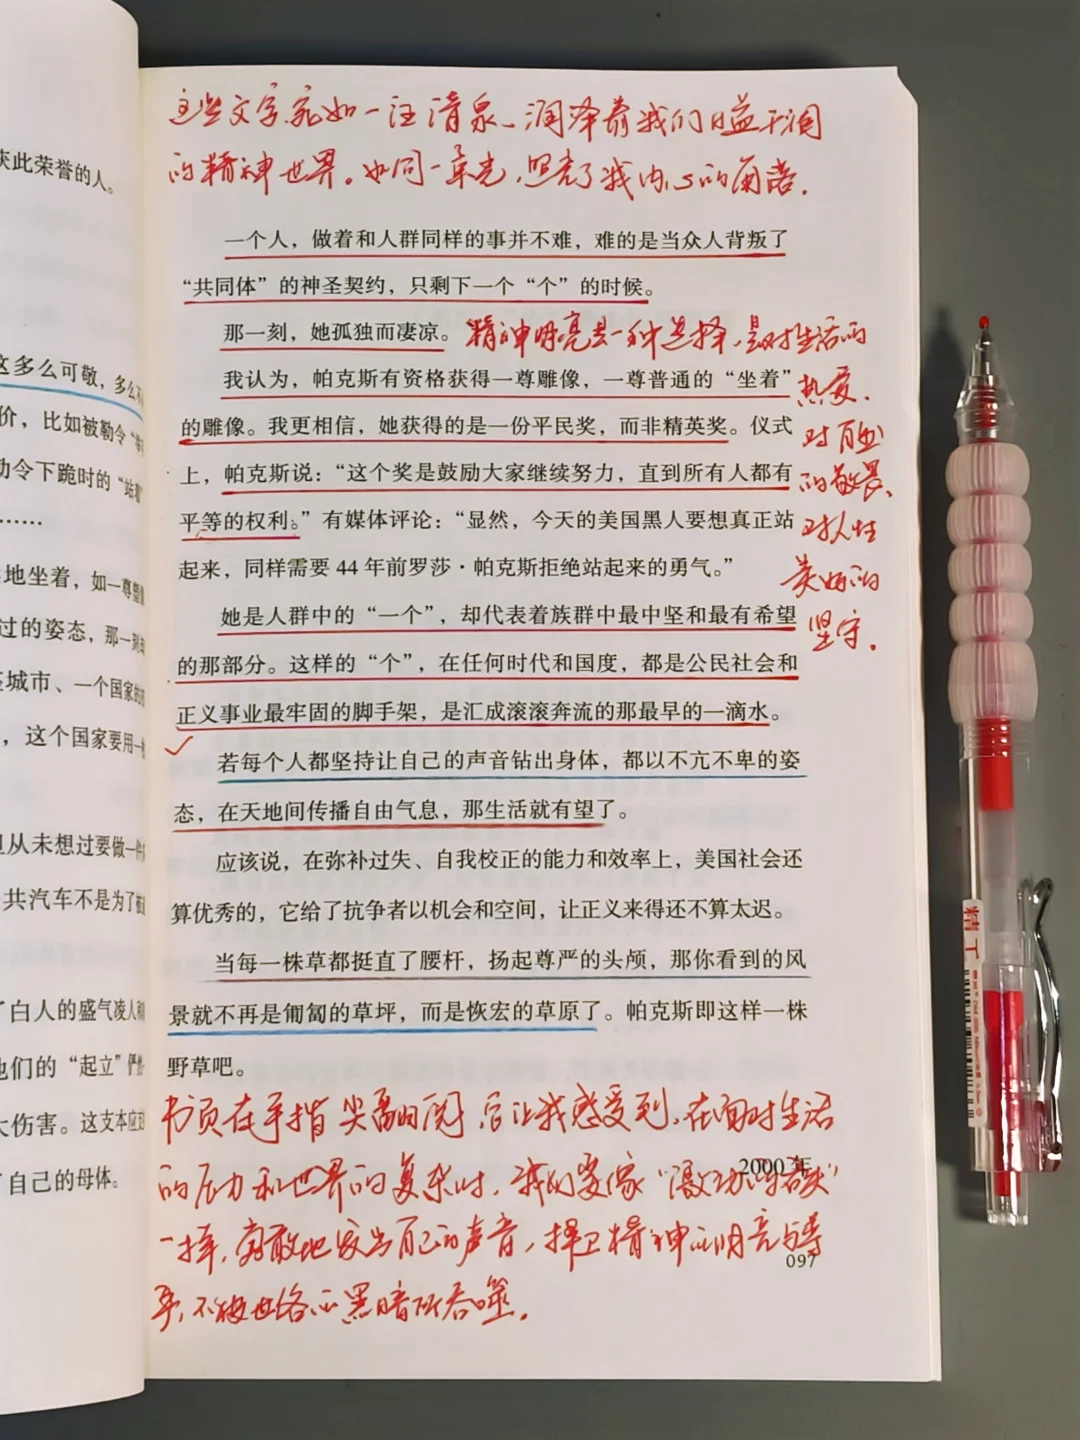 获此荣誉的人。
这多么可敬，多么不
价，比如被勒令“
勒令下跪时的“站着”
……
地坐着，如一尊塑像
过的姿态，那一刻
城市、一个国家的
，这个国家要用一
但从未想过要做一件
共汽车不是为了被
了白人的盛气凌人和
他们的“起立”俨然
大伤害。这支本应
了自己的母体。
这些文字宛如一汪清泉、润泽着我们日益干涸
的精神世界。如同一束光，照亮了我内心的角落.
一个人，做着和人群同样的事并不难，难的是当众人背叛了
“共同体”的神圣契约，只剩下一个“个”的时候。
那一刻，她孤独而凄凉。
精神明亮是一种选择，是对生活的
热爱.
对自然
的敬畏、
对人性
美好的
坚守.
我认为，帕克斯有资格获得一尊雕像，一尊普通的“坐着”
的雕像。我更相信，她获得的是一份平民奖，而非精英奖。仪式
上，帕克斯说：“这个奖是鼓励大家继续努力，直到所有人都有
平等的权利。”有媒体评论：“显然，今天的美国黑人要想真正站
起来，同样需要 44 年前罗莎·帕克斯拒绝站起来的勇气。”
她是人群中的“一个”，却代表着族群中最中坚和最有希望
的那部分。这样的“个”，在任何时代和国度，都是公民社会和
正义事业最牢固的脚手架，是汇成滚滚奔流的那最早的一滴水。
若每个人都坚持让自己的声音钻出身体，都以不亢不卑的姿
态，在天地间传播自由气息，那生活就有望了。
应该说，在弥补过失、自我校正的能力和效率上，美国社会还
算优秀的，它给了抗争者以机会和空间，让正义来得还不算太迟。
当每一株草都挺直了腰杆，扬起尊严的头颅，那你看到的风
景就不再是匍匐的草坪，而是恢宏的草原了。帕克斯即这样一株
野草吧。
书页在手指尖翻阅，它让我感受到，在面对生活
的压力和世界的复杂时，我们要像“激动的舌头”
一样，勇敢地发出自己的声音，捍卫精神的明亮与尊
严，不被世俗的黑暗所吞噬.
2000 年
097
精工